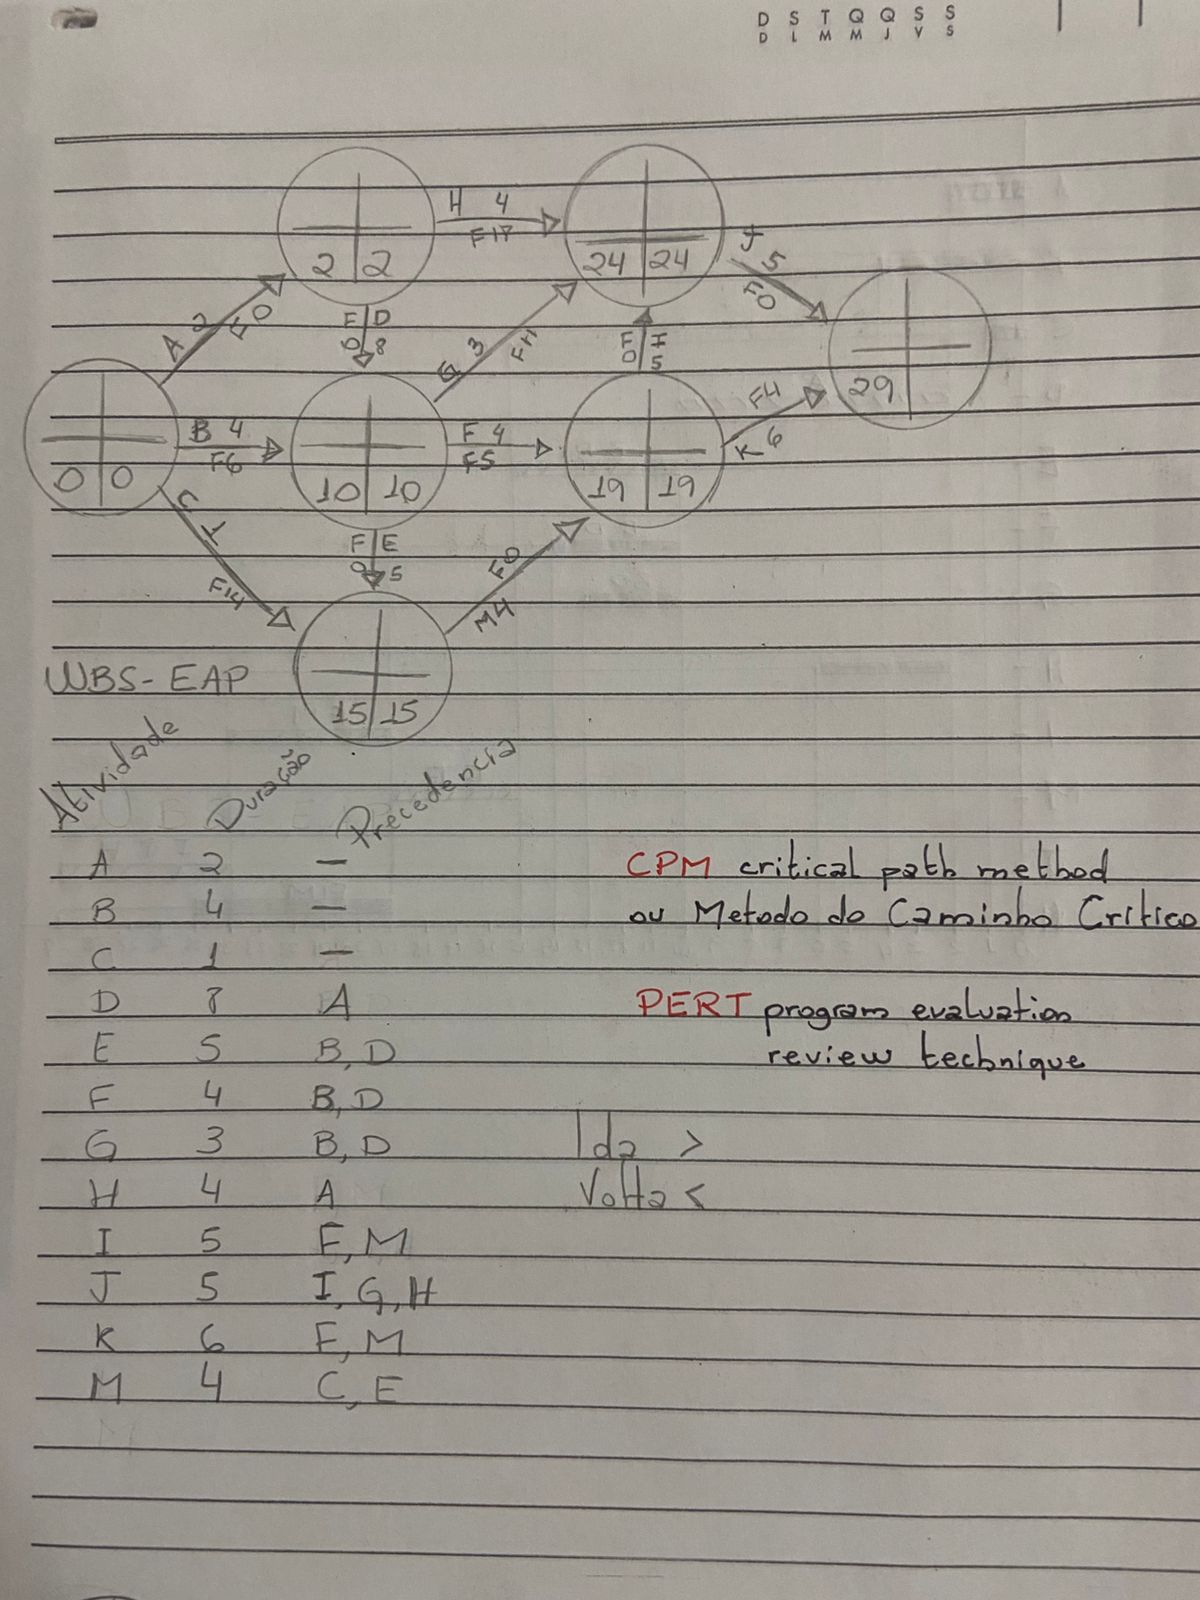 D S T Q Q S S
D L M M J V S
H 4
F18
2 2
24 24
J 5
F0
A 2
F0
F D
0 8
G 3
F11
F I
0 5
29
B 4
F6
F 4
F5
F4
K 6
0 0
10 10
19 19
C 1
F14
F E
0 5
F0
M4
WBS-EAP
15 15
Atividade Duração Precedencia
A 2 —
B 4 —
C 1 —
D 8 A
E 5 B, D
F 4 B, D
G 3 B, D
H 4 A
I 5 F, M
J 5 I, G, H
K 6 F, M
M 4 C, E
CPM critical path method
ou Metodo do Caminho Critico
PERT program evaluation
review technique
Ida >
Volta <